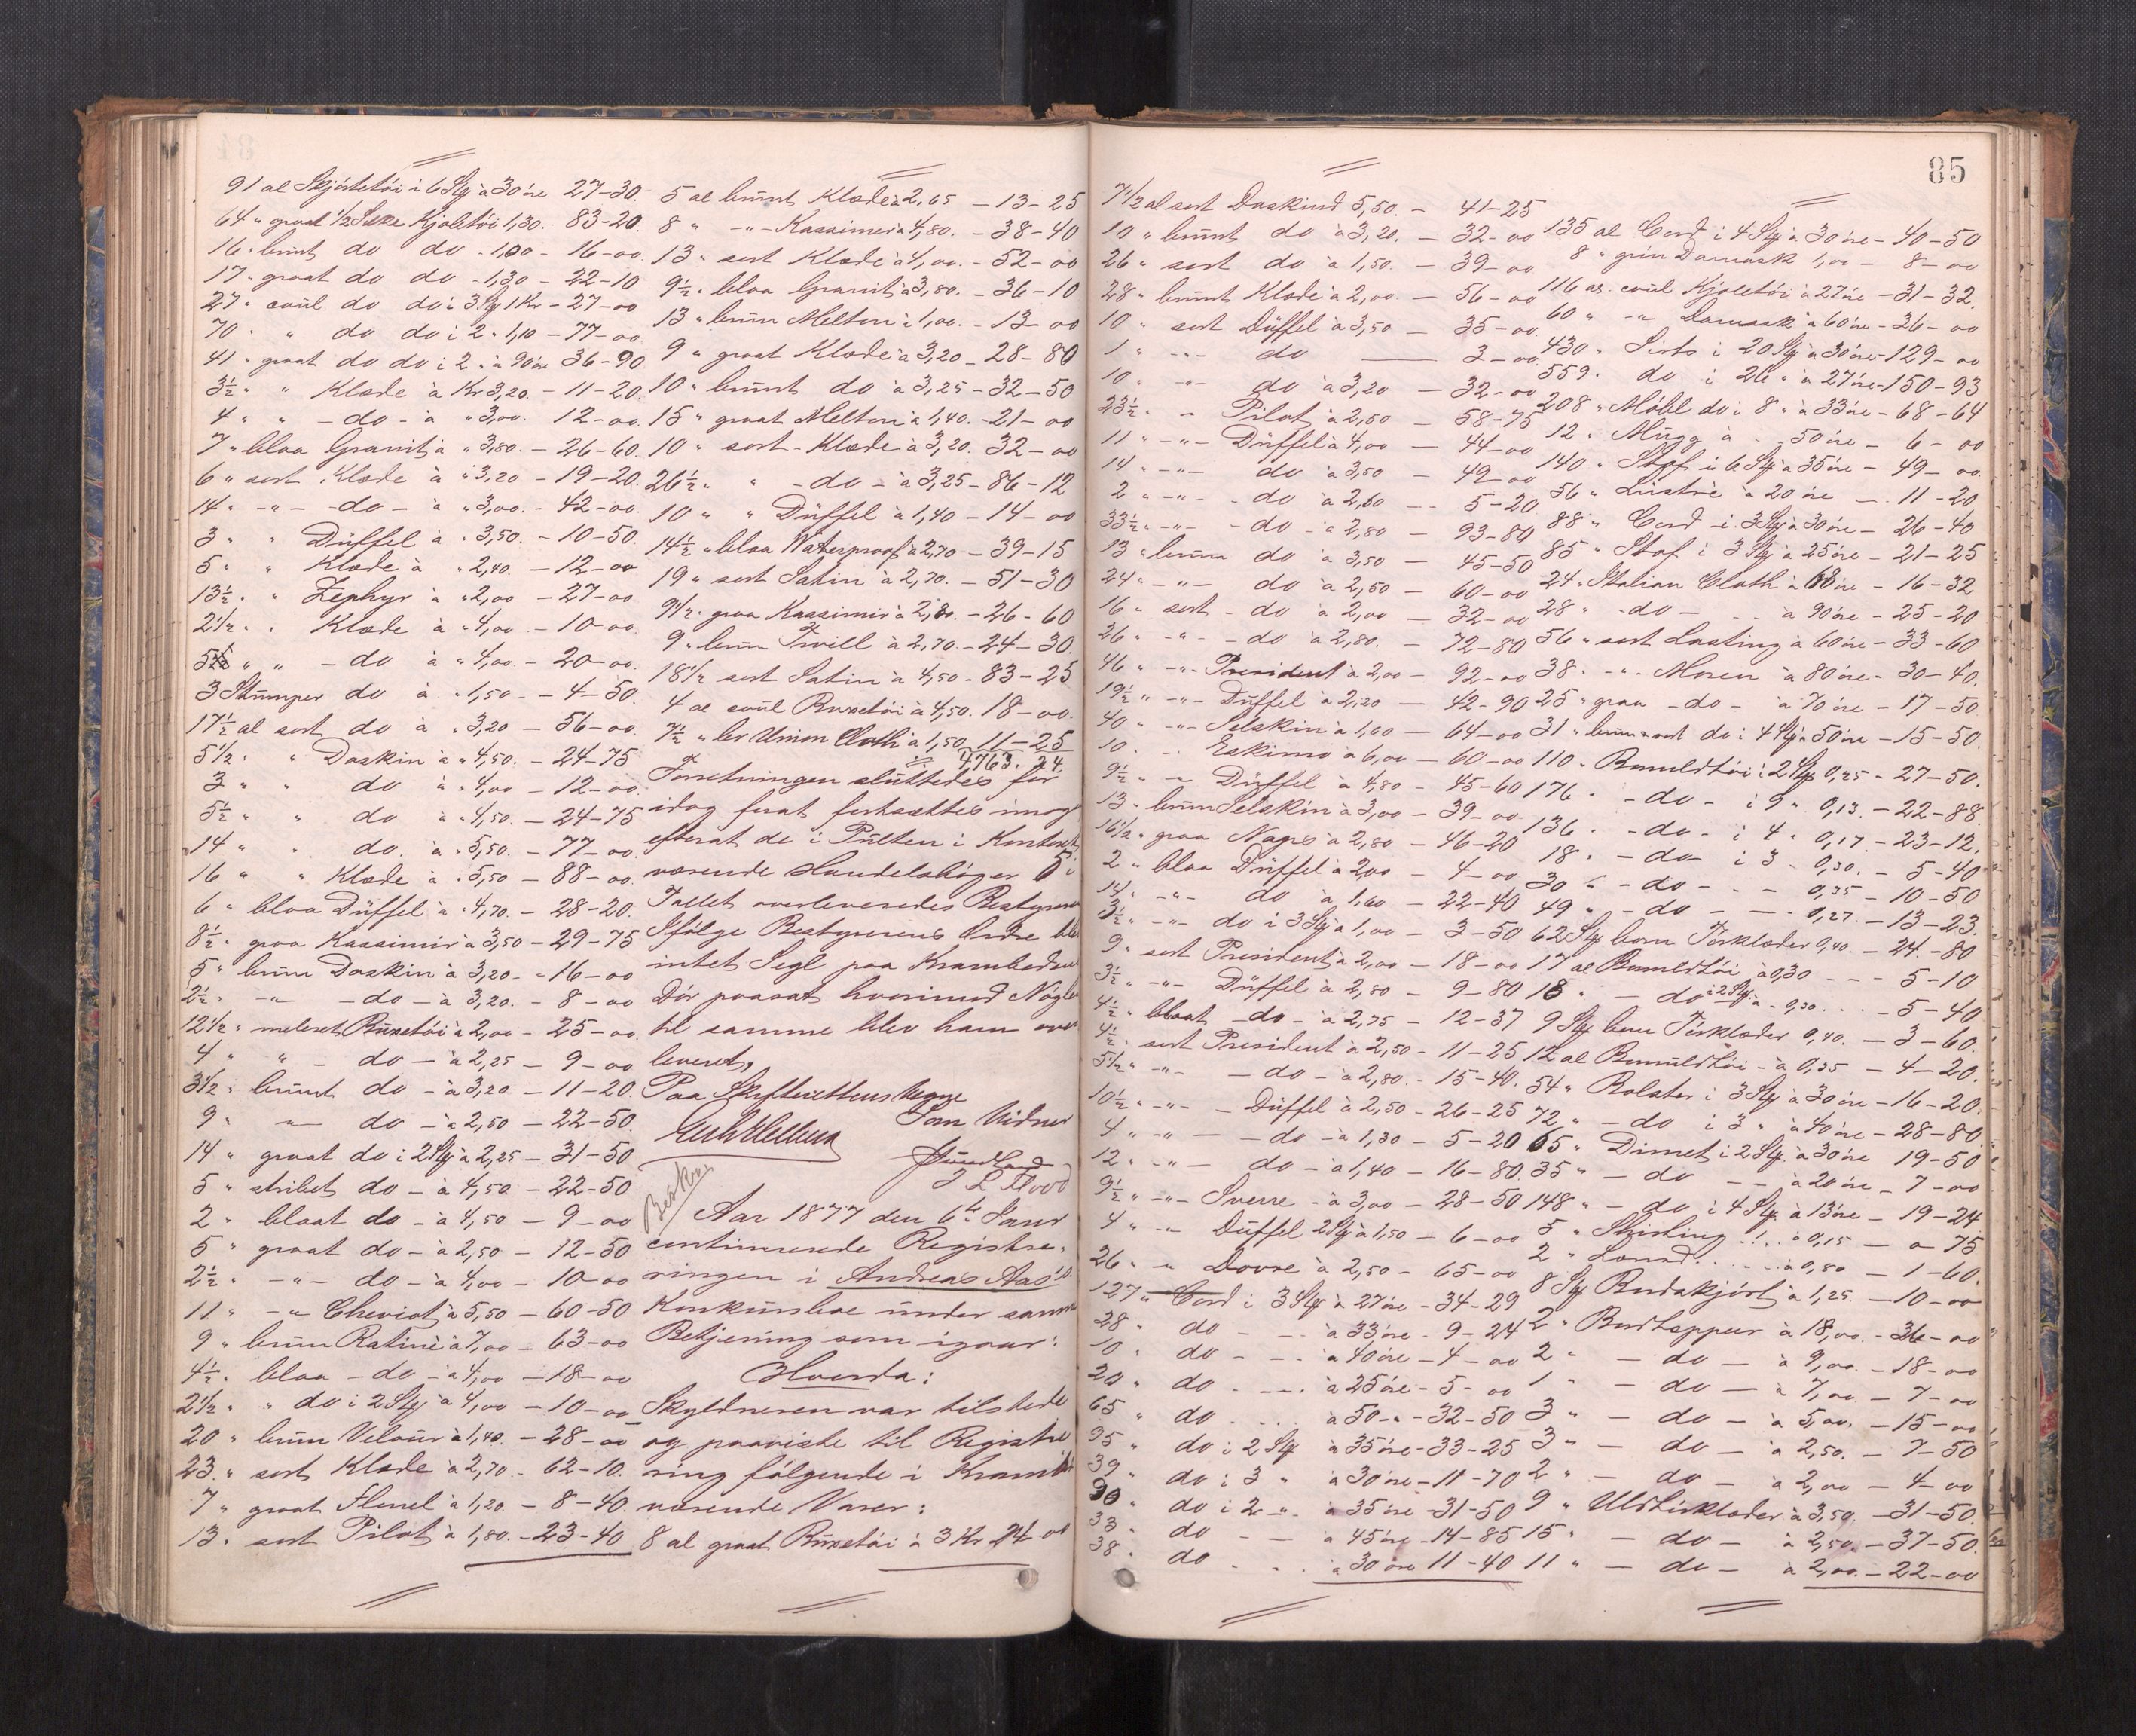 91 al Skjortetöi i 6 Stk à 30 öre 27-30.
64 " graat 1/2 Silke Kjoletöi 1,30. 83-20.
16 " brunt do do - 1,00 - 16-00
17 " graat do do - 1,30 - 22-10
27 " coul do do i 3 Stk 1 Kr - 27-00
70 " " do do i 2 " 1,10 - 77-00
41 " graat do do i 2 " à 90 öre 36-90
3½ " " Klæde à Kr 3,20. - 11-20
4 " " - do - à " 3,00. 12-00.
7 " blaa Granit à " 3,80. - 26-60
6 " sort Klæde à " 3,20 - 19-20.
14 " -"- - do - à " 3,00. - 42-00.
3 " " Düffel à " 3,50. - 10-50.
5 " " Klæde à " 2,40. - 12-00
13½ " " Zephyr à " 2,00 - 27-00
2½ " " Klæde à " 4,00 - 10-00.
5 " " - do à " 4,00. - 20-00.
3 Stumper do à " 1,50 - - 4-50.
17½ al sort do à " 3,20 - 56-00.
5½ " " Doskin à " 4,50. - 24-75
3 " " do à " 4,00 - 12-00.
5½ " " do à " 4,50. - 24-75
14 " " do. à " 5,50. - 77-00.
16 " " Klæde à " 5,50 - 88-00.
6 " blaa Düffel à " 4,70. - 28-20.
8½ " graa Kassimir à 3,50 - 29-75
5 " brun Doskin à 3,20 - - 16-00
2½ " -"- - do - à 3,20. - 8-00
12½ " meleret Buxetöi à 2,00 - 25-00.
4 " " - do - à 2,25 - 9-00
3½ " brunt do - à 3,20 - 11-20.
9 " -"- do - à 2,50 - 22-50.
14 " graat do i 2 Stk à 2,25 - 31-50
5 " stribet do - à 4,50 - 22-50
2 " blaat do - à 4,50 - 9-00
5 " graat do - à 2,50 - 12-50
2½ " -"- do - à 4,00 - 10-00
11 " -"- Cheviot à 5,50 - 60-50
9 " brun Ratiné à 7,00 - 63-00
4½ " blaa - do - à 4,00 - 18-00
2½ " " do i 2 Stk à 4,00 - 10-00
20 " brun Velour à 1,40. - 28-00
23 " sort Klæde à 2,70 - 62-10.
7 " graat Flonel à 1,20 - 8-40.
13 " sort Pilot à 1,80. - 23-40
5 al brunt Klæde à 2,65 - 13-25
8 " -"- Kassimir à 4,80. - 38-40
13 " sort Klæde à 4,00. - 52-00
9½ " blaa Granit à 3,80. - 36-10
13 " brun Melton à 1,00. - 13-00
9 " graat Klæde à 3,20 - 28-80
10 " brunt do à 3,25 - 32-50
15 " graat Melton à 1,40. - 21-00
10 " sort - Klæde à 3,20. 32-00
26½ " " - do - à 3,25 - 86-12
10 " " Düffel à 1,40 - 14-00
14½ " blaa Waterproof à 2,70 - 39-15
19 " sort Satin à 2,70. - 51-30
9½ " graa Kassimir à 2,80. - 26-60
9 " brun Twill à 2,70. - 24-30.
18½ sort Satin à 4,50 - 83-25
4 al coul Buxetöi à 4,50. 18-00.
7½ " br Union Cloth à 1,50 11-25
4763. 24.
Forretningen sluttedes for
idag forat fortsættes imorg
efterat de i Pulten i Kontoret
værende Handelsböger 5 i
Tallet overleveredes Bestyreren
Ifölge Bestyrerens Ordre blev
intet Segl paa Kramboden
Dör paasat hvorimod Nöglen
til samme blev ham over
leveret.
Paa Skifterettens Vegne
Som Vidner
J L Flood
Aar 1877 den 6te Janr
continuerede Registre-
ringen i Andreas Aas's
Konkursboe under samme
Betjening som igaar:
Hvorda:
Skyldneren var tilstede
og paaviste til Registre
ring fölgende i Kramb
værende Varer:
8 al graat Buxetöi à 3 Kr 24-00
85
7½ al sort Doskind 5,50. - 41-25
10 " brunt do à 3,20. - 32-00
26 " sort do à 1,50. - 39-00
28 " brunt Klæde à 2,00 - 56-00
10 " sort Düffel à 3,50 - 35-00.
1 " -"- do - 3-00.
10 " -"- do à 3,20 - 32-00
23½ " - Pilot à 2,50 - 58-75
11 " -"- Düffel à 4,00 - 44-00
14 " -"- do à 3,50 - 49-00
2 " -"- - do à 2,60 - - 5-20
33½ " -"- - do - à 2,80 - 93-80
13 " brun do à 3,50 - 45-50
24 " -"- do à 2,50 - 60-00
16 " sort - do à 2,00 - 32-00
26 " -"- - do à 2,80. - 72-80
46 " -"- President à 2,00 - 92-00
19½ " -"- Düffel à 2,20 - 42-90
40 " -"- Selskin à 1,60 - 64-00
10 " - Eskimo à 6,00 - 60-00
9½ " -"- Düffel à 4,80 - 45-60
13 " brun Selskin à 3,00 - 39-00.
16½ " graa Napré à 2,80 - 46-20
2 " blaa Düffel à 2,00 - 4-00
14 " -"- do à 1,60 - 22-40
3½ " -"- do i 3 Stk à 1,00 - 3-50
9 " sort President à 2,00 - 18-00
3½ " -"- Düffel à 2,80 - 9-80
4½ " blaat - do - à 2,75 - 12-37
4½ " sort President à 2,50 - 11-25
5½ " -"- - do - à 2,80. - 15-40.
10½ " -"- - Düffel à 2,50 - 26-25
4 " -"- - do - à 1,30 - 5-20
12 " -"- do - à 1,40 - 16-80.
9½ " -"- Sverre - à 3,00 - 28-50
4 " -"- Düffel 2 Stk à 1,50 - 6-00
26 " -"- Dovre à 2,50 - 65-00
127 " Cord i 3 Stk à 27 öre - 34-29
28 " do - - à 33 öre - 9-24
10 " do - - à 40 öre - 4-00
20 " do - - à 25 öre - 5-00
65 " do - - à 50 - " - 32-50
95 " do i 2 Stk à 35 öre - 33-25
39 " do i 3 " à 30 öre - 11-70
90 " do i 2 - " - à 35 öre - 31-50
33 " do - à 45 öre - 14-85
38 " do - à 30 öre 11-40
135 al Cord i 4 Stk à 30 öre - 40-50
8 " grön Damask 1,00 - 8-00
116 al. coul Kjoletöi à 27 öre - 31-32.
60 " -"- Damask à 60 öre - 36-00
430 " Sirts i 20 Stk à 30 öre - 129-00
559 " do i 26 " à 27 öre - 150-93
208 " Möbl do i 8 " à 33 öre - 68-64
12 " Mugg à - 50 öre - 6-00
140 " Stof i 6 Stk à 35 öre - 49-00
56 " Lustré à 20 öre - 11-20
88 " Cord i 3 Stk à 30 öre - 26-40
85 " Stof i 3 Stk à 25 öre - 21-25
24 " Italian Cloth à 68 öre - 16-32
28 " - do - - à 90 öre - 25-20
56 " sort Lasting à 60 öre - 33-60
38 " -"- Moren à 80 öre - 30-40.
25 " graa - do - à 70 öre - 17-50
31 " brun & sort do i 4 Stk à 50 öre - 15-50.
110 " Bomuldtöi i 2 Stk 0,25 - 27-50.
176 " - do - i 9 " 0,13. - 22-88.
136 " - do - i 4 " 0,17. - 23-12.
18 " - do - i 3 - 0,30. - 5-40
30 " - do - - - 0,35 - 10-50
49 " - do - - - 0,27. - 13-23.
62 Stk bom Törklæder 0,40. - 24-80
17 al Bomuldtöi à 0,30 - - - 5-10
18 " - do i 2 Stk à - 0,30 - - - 5-40
9 Stk bom Törklæder 0,40. - 3-60.
12 al Bomuldtöi - à 0,35 - 4-20.
54 " Bolster i 3 Stk à 30 öre - 16-20.
72 " - do i 3 " à 40 öre - 28-80
65 " Dimet i 2 Stk. à 30 öre 19-50
35 " - do - - à 20 öre - 7-00
148 " - do i 4 Stk à 13 öre - 19-24
5 " Shirting - à 0,15 - 0 75
2 " Lonad - à 0,80 - 1-60.
8 Stk Budskjört à 1,25 - 10-00
2 " Bordtepper à 18,00. - 36-00
2 " - do - à 9,00. - 18-00
1 " - do - à 7,00. - 7-00
3 " - do - à 5,00. - 15-00
3 " - do - à 2,50. - 7-50
2 " - do - à 2,00 - 4-00
9 " Uldtörklæder à 3,50. - 31-50.
15 " - do - à 2,50. - 37-50.
11 " - do - à 2,00. - 22-00